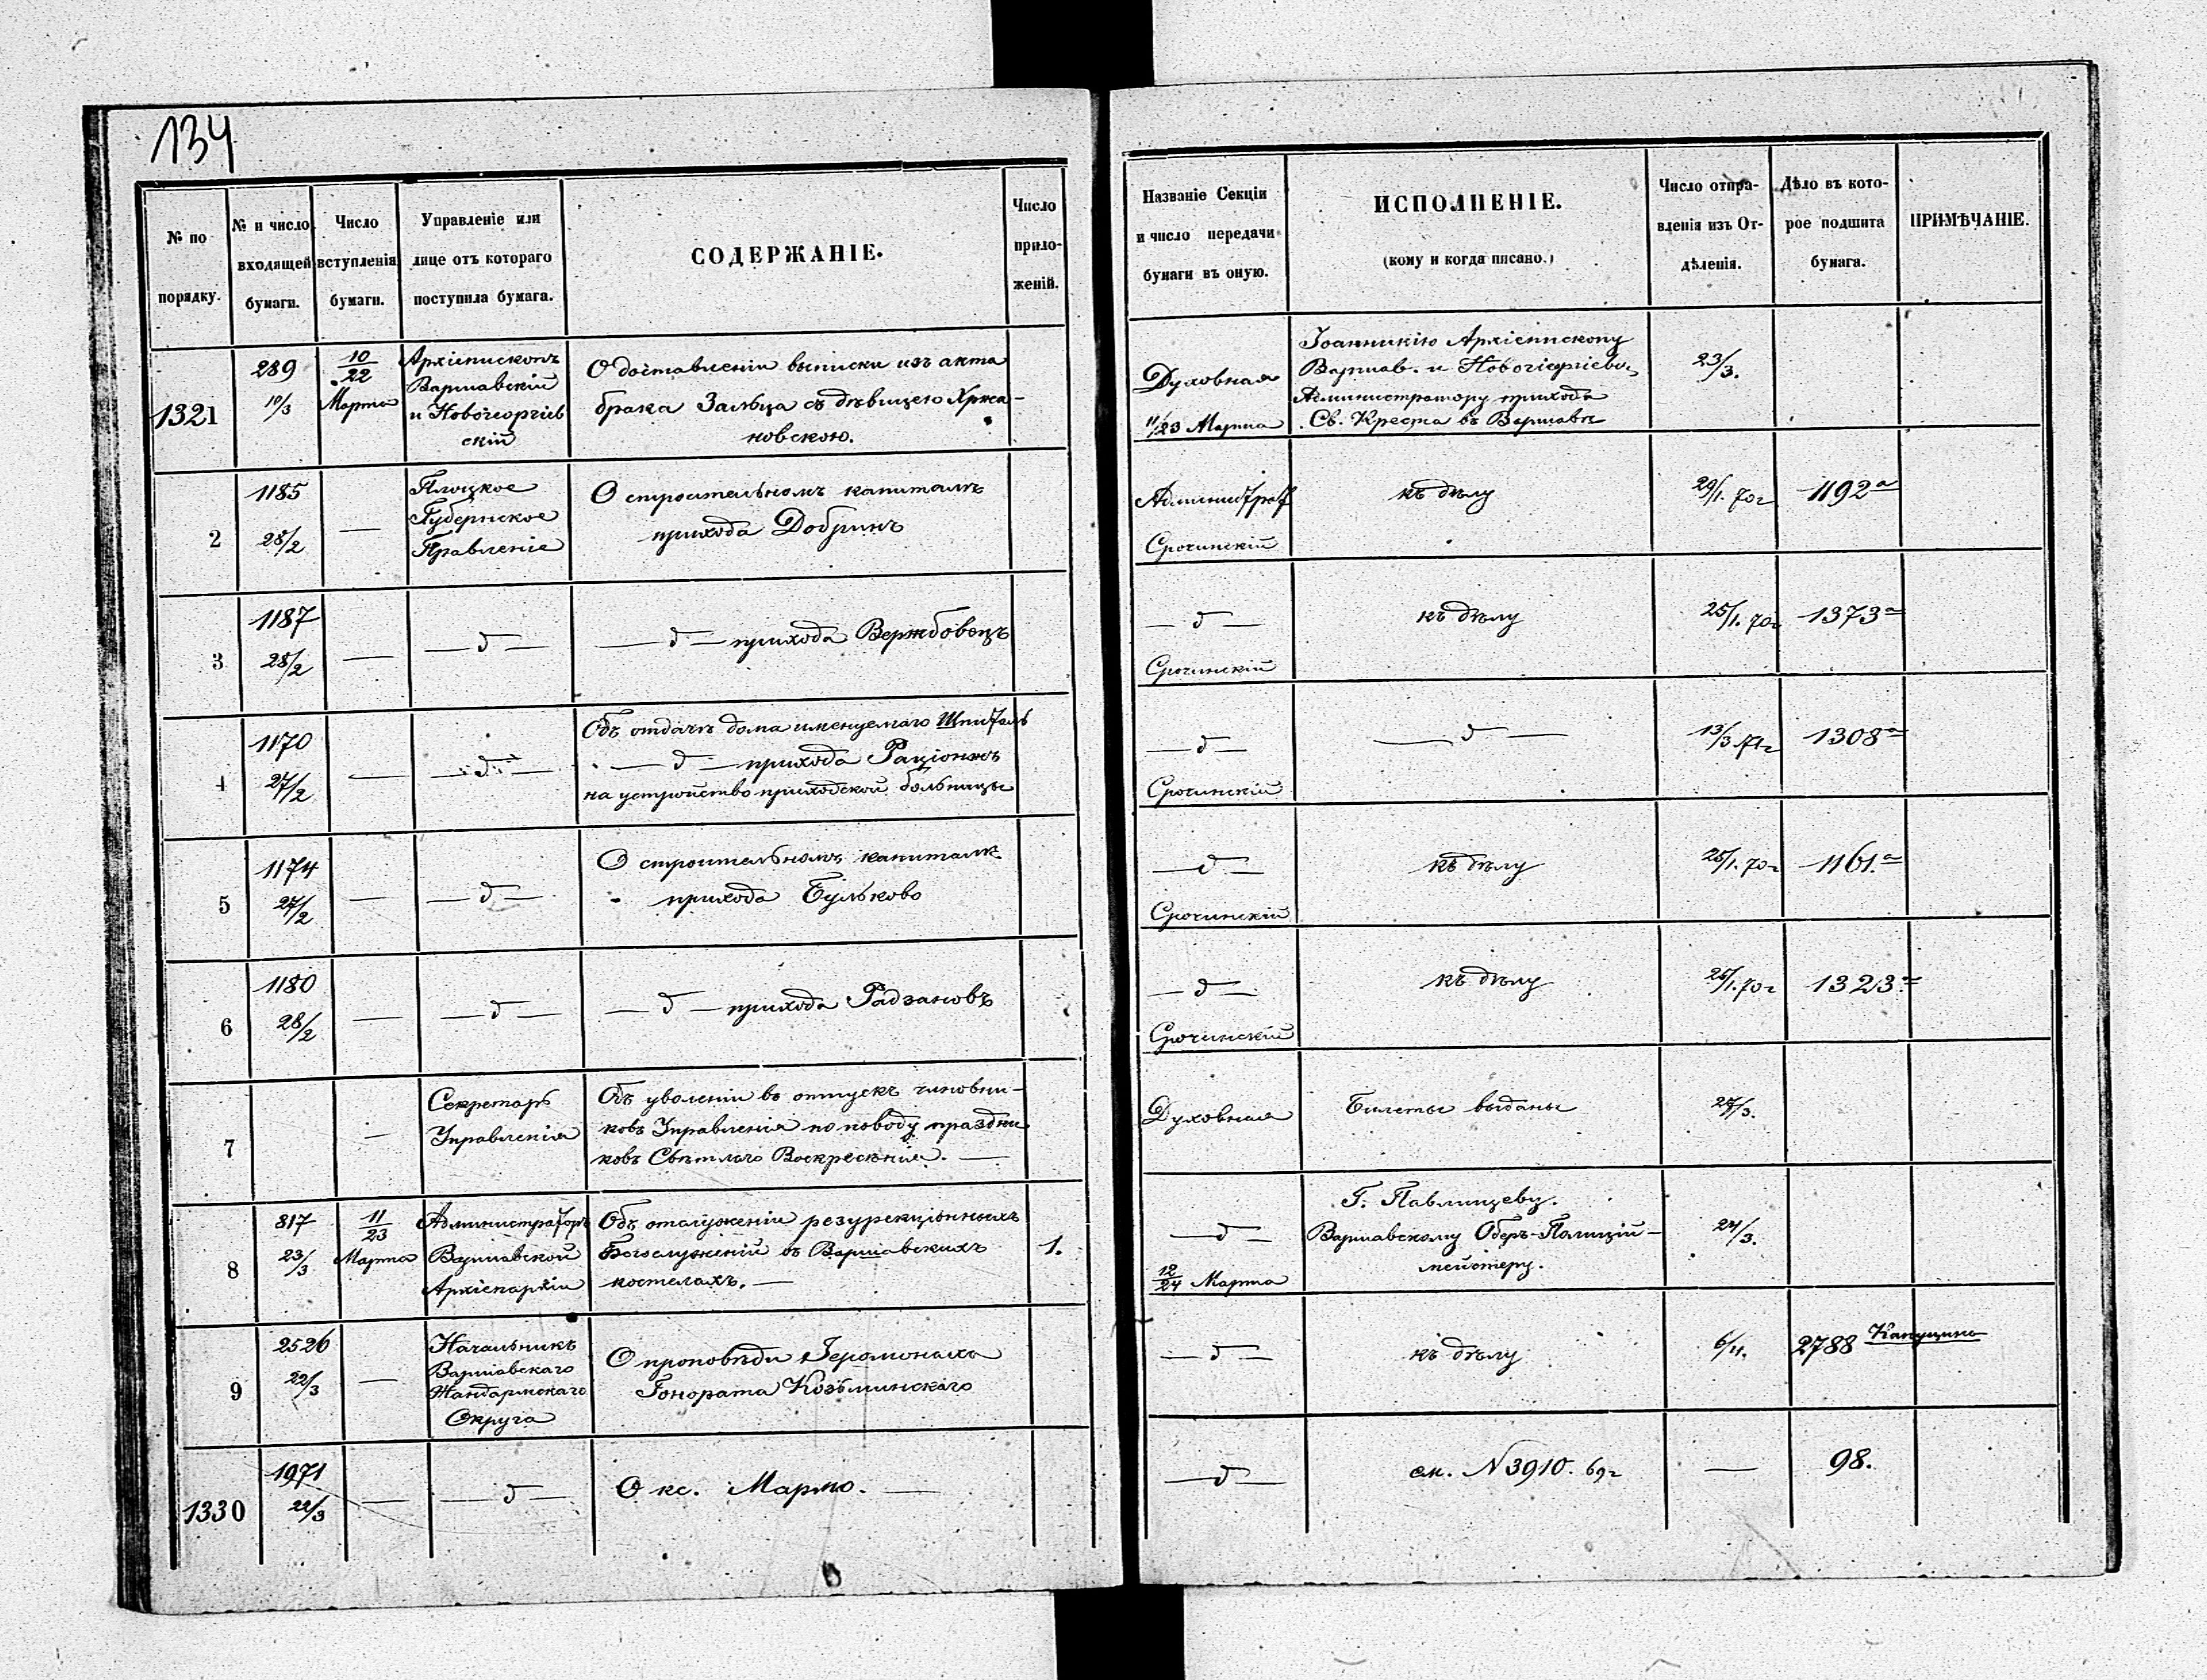 134
№ по порядку.
№ и число входящей бумаги.
Число вступленія бумаги.
Управленіе или лице отъ котораго поступила бумага.
СОДЕРЖАНІЕ.
Число приложеній.
Названіе Секціи и число передачи бумаги въ оную.
ИСПОЛНЕНІЕ.
(кому и когда писано.)
Число отправленія изъ Отдѣленія.
Дѣло въ которое подшита бумага.
ПРИМѢЧАНІЕ.
1321
289
10/3
10/22
Марта
Архіепископъ
Варшавскій
и Новогеоргіев
скій
О доставленіи выписки изъ акта
брака Зальца съ дѣвицею Хржа-
новскою.
Духовная
11/23 Марта
Іоанникію Архіепископу
Варшав. и Новогеоргіевс.
Администратору прихода
Св. Креста въ Варшавѣ
23/3.
2
1185
28/2
—
Плоцкое
Губернское
Правленіе
О строительномъ капиталѣ
прихода Добринъ
Срочинскій
къ дѣлу
29/1. 70г
1192а
3
1187
28/2
—
— д —
— д — прихода Вержбовецъ
— д —
Срочинскій
къ дѣлу
25/1. 70г
1373а
4
1170
27/2
—
— д —
Объ отдачѣ дома именуемаго Шпиталь
— д — прихода Раціонжъ
на устройство приходской больницы
— д —
Срочинскій
— д —
13/3 71г
1308а
5
1174
27/2
—
— д —
О строительномъ капиталѣ
прихода Бульково
— д —
Срочинскій
къ дѣлу
25/1. 70г
1161.а
6
1180
28/2
—
— д —
— д — прихода Радзановъ
— д —
Срочинскій
къ дѣлу
25/1. 70г
1323.а
7
—
Секретарь
Управленія
Объ уволеніи въ отпускъ чиновни-
ковъ Управленія по поводу праздни
ковъ Свѣтлаго Воскресенія. —
Духовная
Билеты выданы
27/3.
8
817
23/3
11/23
Марта
Администраторъ
Варшавской
Архіепархіи
Объ отслуженіи резурекціонныхъ
Богослуженій въ Варшавскихъ
костелахъ. —
1.
— д —
12/24 Марта
Г. Павлищеву.
Варшавскому Оберъ-Полицій-
мейстеру.
24/3.
9
2526
22/3
—
Начальникъ
Варшавскаго
Жандармскаго
Округа
О проповѣди Іеромонаха
Гонората Козьминскаго
— д —
къ дѣлу
6/4.
2788
1330
1971
22/3
—
— д —
О кс. Мармо. —
— д —
см. N 3910. 69г
—
98.